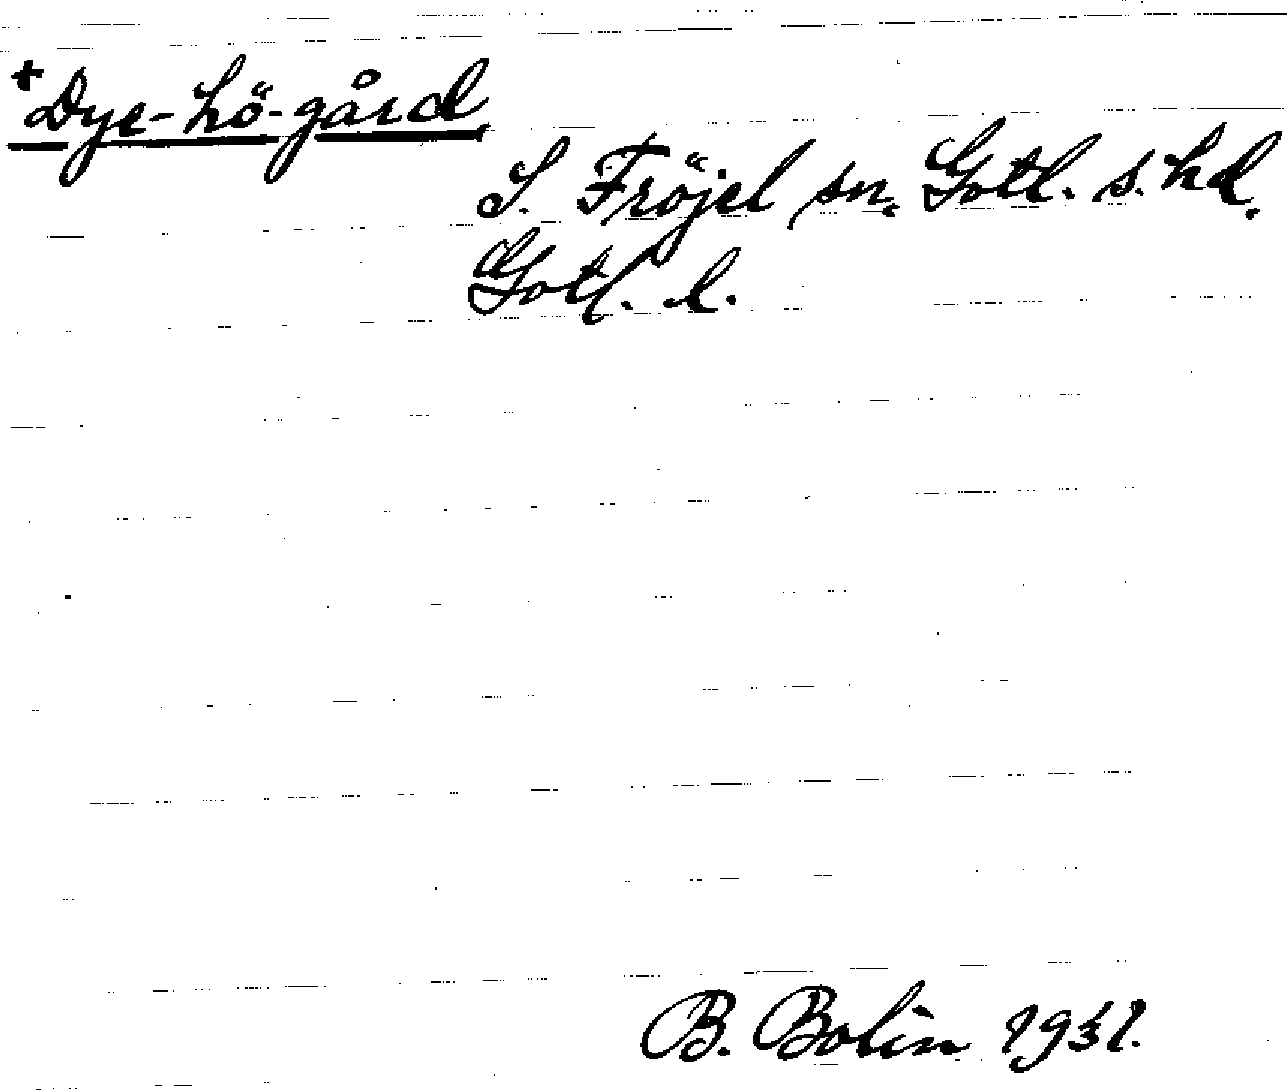 +Dye-hö-gård
S. Fröjel sn, Gotl. s. hd.
Gotl. l.
B. Bolin 1931.